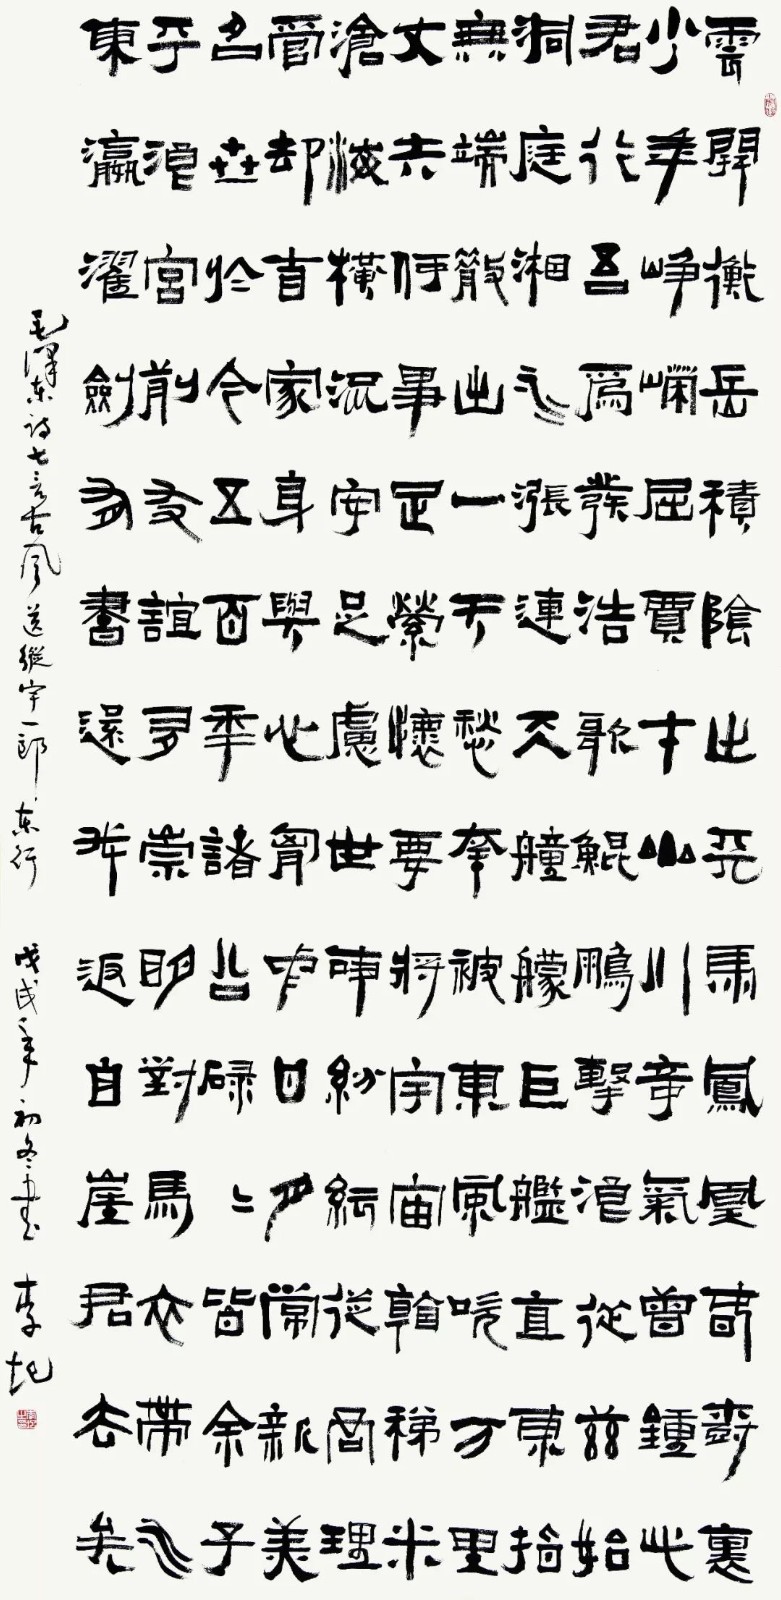 雲開衡岳積陰止天馬鳳凰春樹裏
少年崢嶸屈賈才山川奇氣曾鍾此
君行吾為發浩歌鯤鵬擊浪從茲始
洞庭湘水漲連天艟艨巨艦直東指
無端散出一天愁幸被東風吹万里
丈夫何事足縈懷要將宇宙看稊米
滄海橫流安足慮世事紛紜從君理
管却自家身與心胸中日月常新美
名世於今五百年諸公碌〻皆余子
平浪宮前友誼多崇明對馬衣帶水
東瀛濯劍有書還我返自崖君去矣
毛澤東詩七言古風送縱宇一郎東行 戊戌年初冬書 李